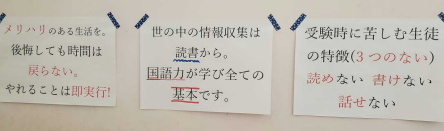 メリハリのある生活を。
後悔しても時間は
戻らない。
やれることは即実行!
世の中の情報収集は
読書から。
国語力が学び全ての
基本です。
受験時に苦しむ生徒
の特徴(3つのない)
読めない 書けない
話せない